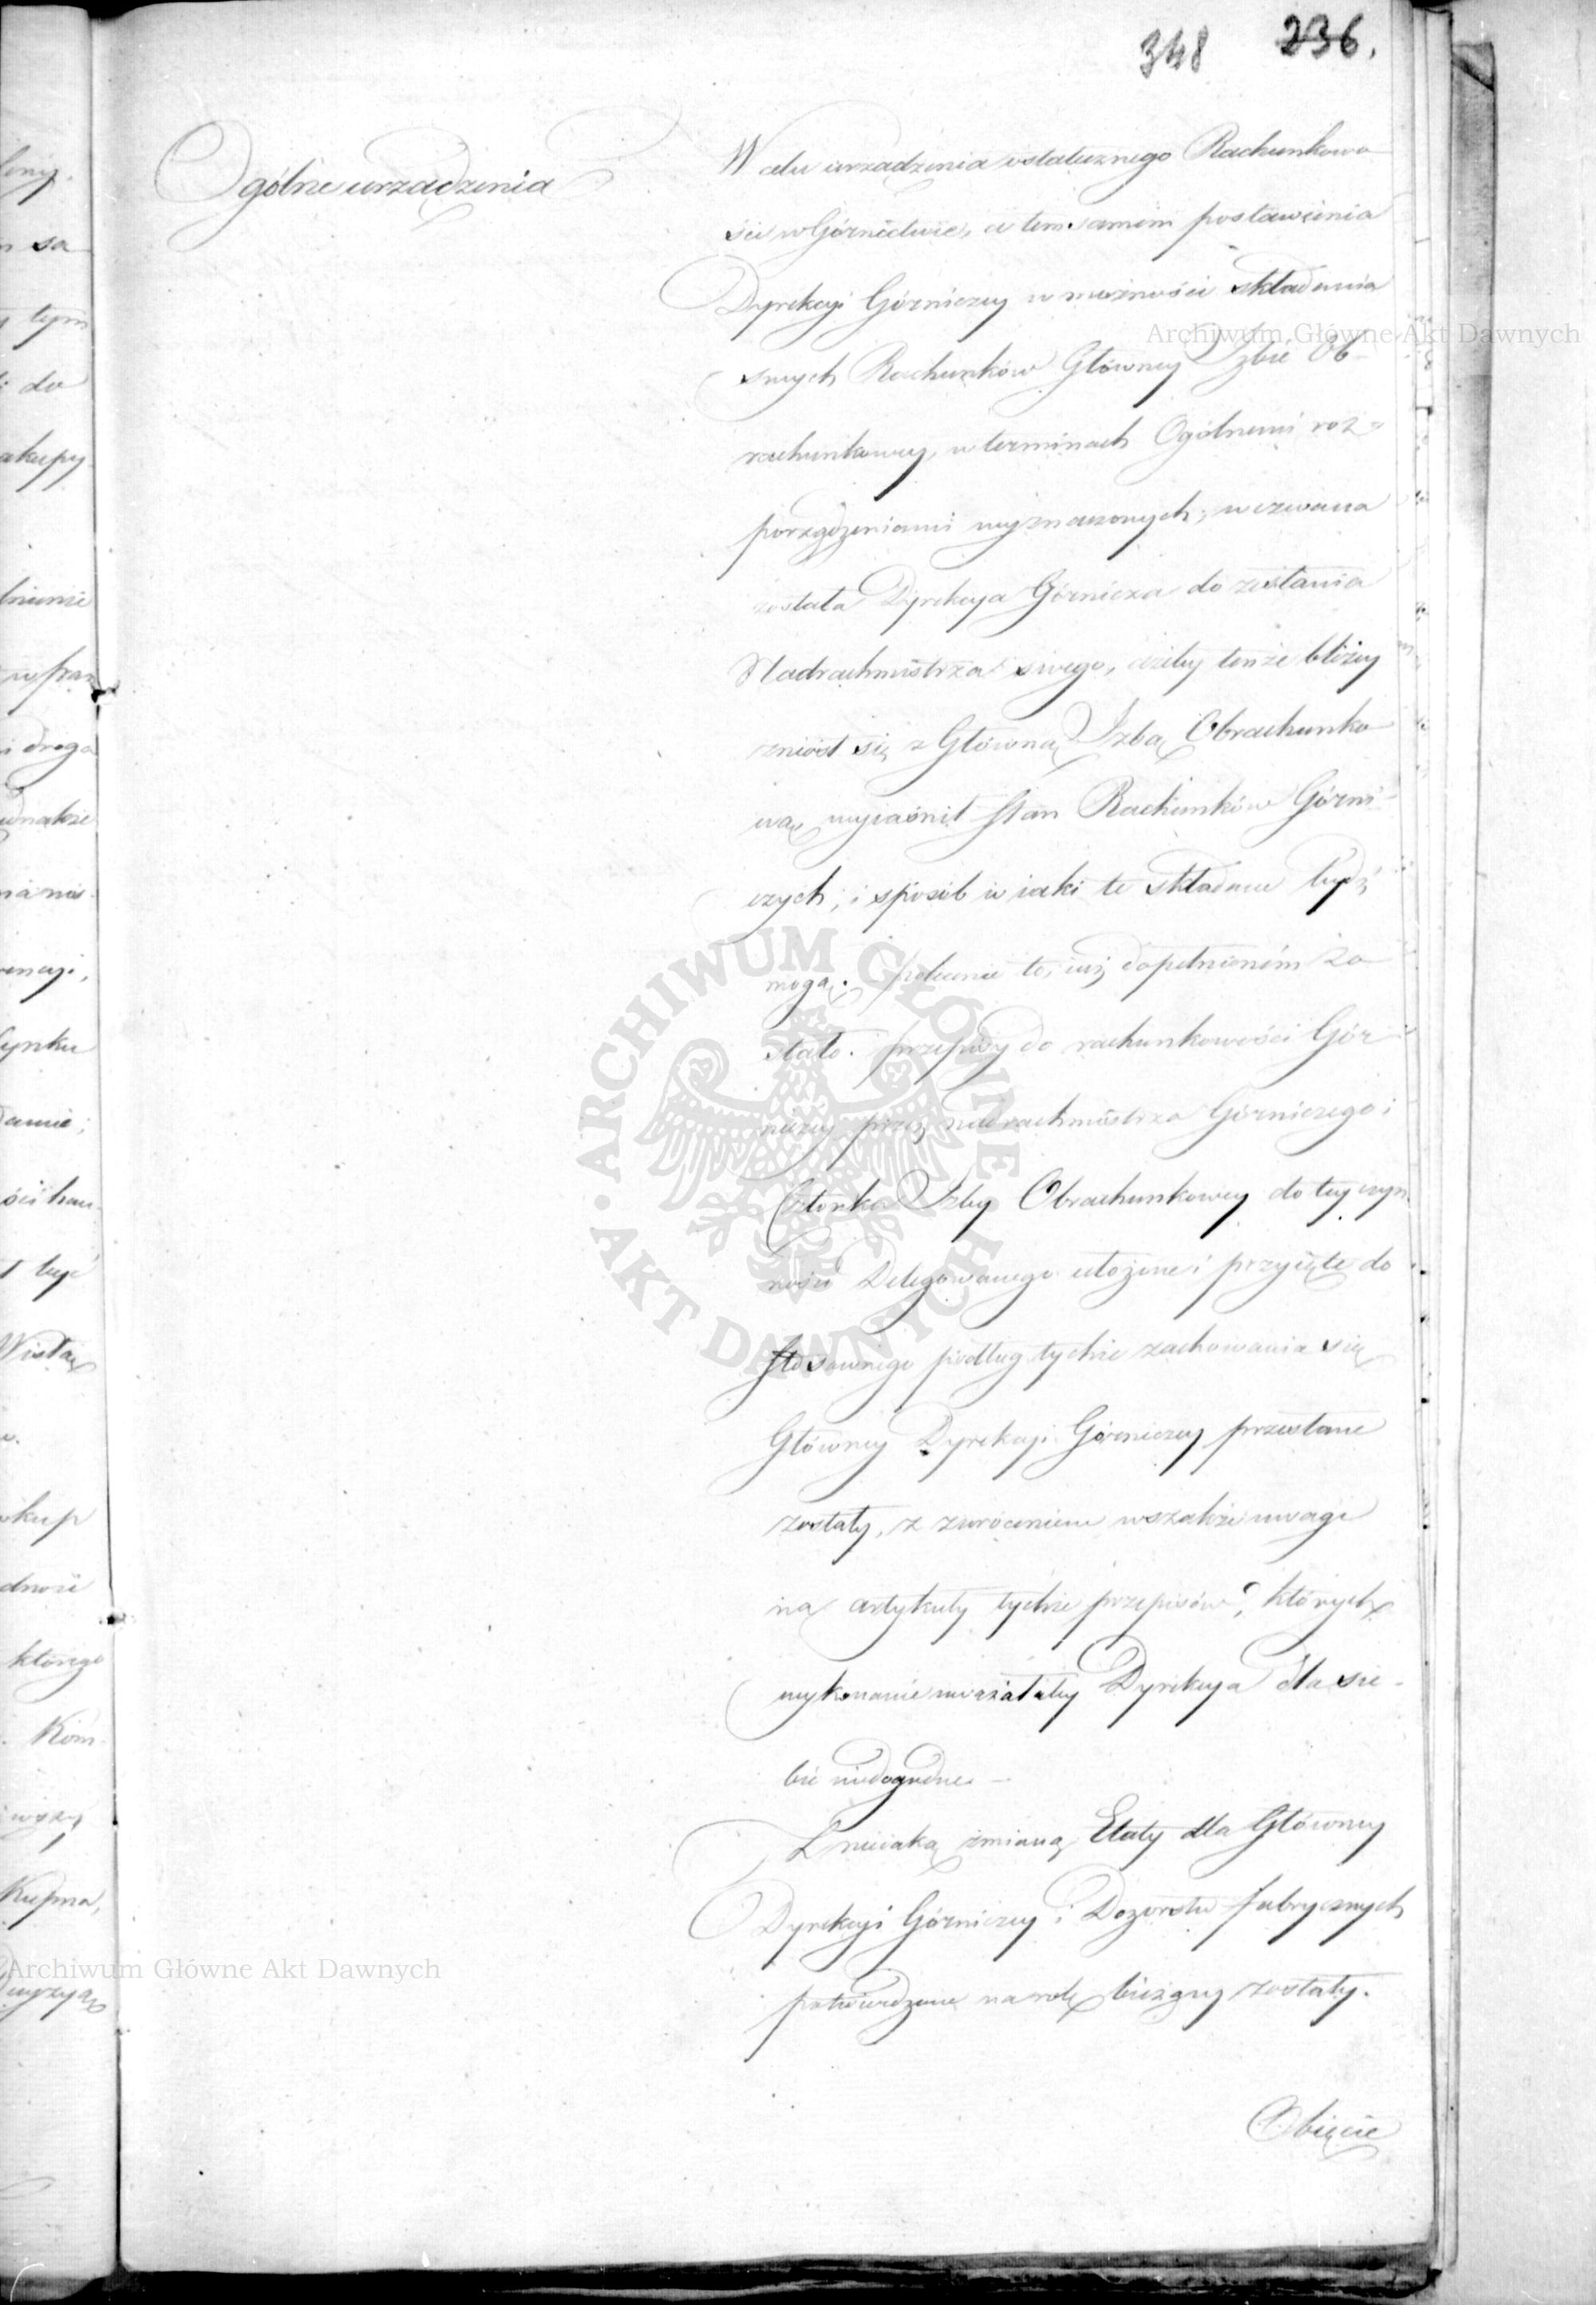 348 236.
Ogólne urządzenia
W celu urządzenia ostatecznego Rachunkowo
ści w Górnictwie, a tem samem postawienia
Dyrekcyi Górniczey w możności składania
swych Rachunków Główney Izbie Ob-
rachunkowey, w terminach Ogólnemi roz-
porządzeniami wyznaczonych; wezwana
została Dyrekcya Górnicza do zesłania
Nadrachmistrza swego, ażeby tenże bliżey
zniósł się z Główną Izbą Obrachunko
wą, wyiaśnił stan Rachunków Górni-
czych; i sposób w iaki te składane bydź
mogą. polecenie to, iuż dopełnioném zo
stało. przepisy do rachunkowości Gór
niczey przez nadrachmistrza Górniczego i
Członka Izby Obrachunkowey do tey czyn
ności Delegowanego ułożone i przyięte do
stosownego podług tychże zachowania się
Główney Dyrekcyi Górniczey przesłane
zostały, z zwróceniem wszakże uwagi
na artykuły tychże przepisów, których
wykonanie uważałaby Dyrekcya dla sie-
bie niedogodne. —
Z nieiaką zmianą Etaty dla Główney
Dyrekcyi Górniczey i Dozorstw fabrycznych
potwierdzone na rok bieżący zostały.
Obięcie
Archiwum Główne Akt Dawnych
ARCHIWUM GŁÓWNE · AKT DAWNYCH ·
Archiwum Główne Akt Dawnych